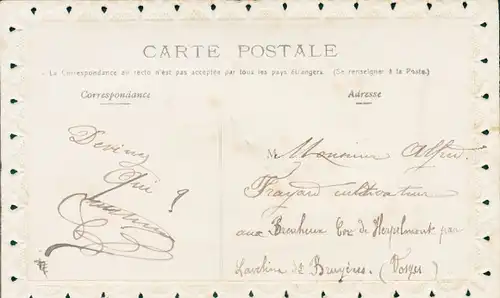 CARTE POSTALE
La Correspondance au recto n'est pas acceptée par tous les pays étrangers. (Se renseigner à la Poste.)
Correspondance
Adresse
Devinez
Qui ?
M Monsieur Alfred
Frayard cultivateur
aux Bronheux Cne de Herpelmont par
Laveline dt Bruyères. (Vosges)